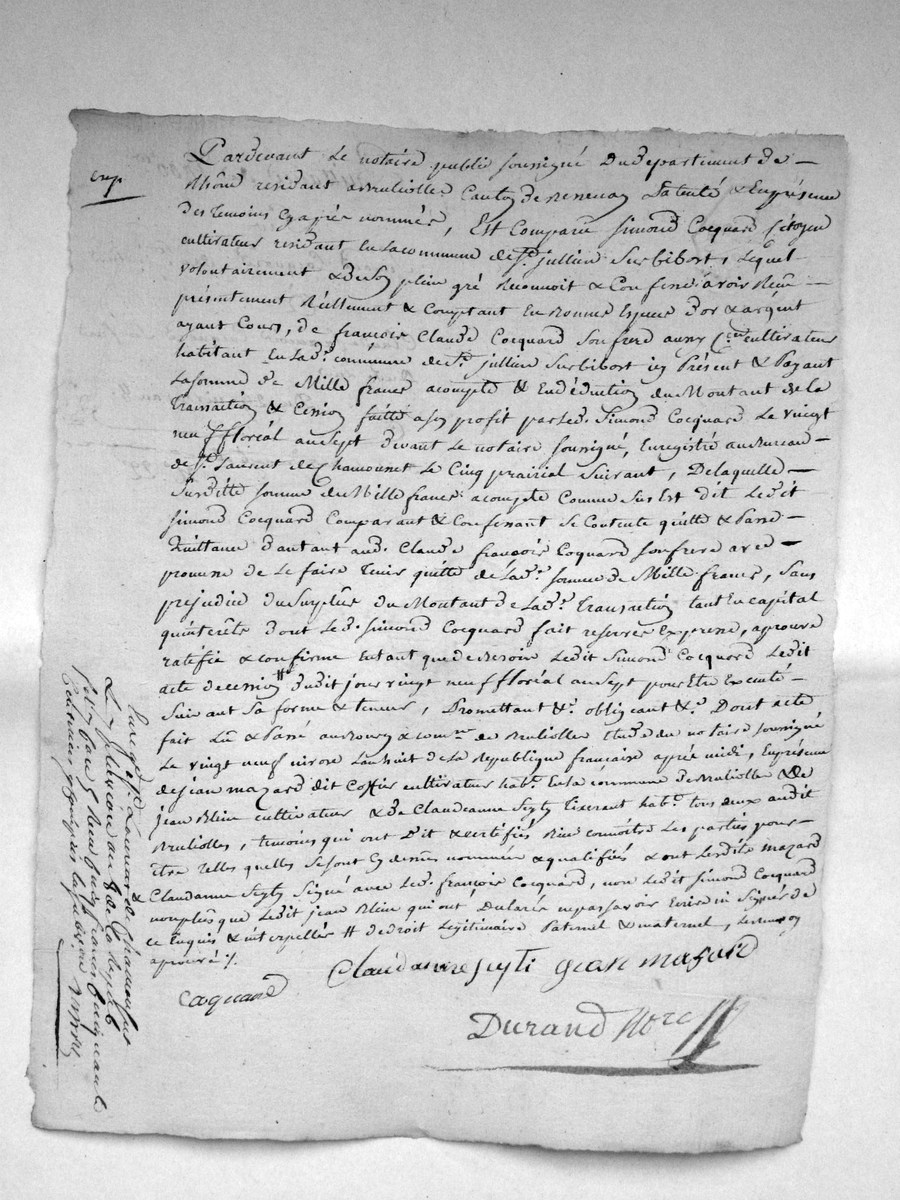 Exp
Pardevant Le notaire public soussigné Dudepartement de
Rhône residant a Brulliolle Canton de Bessenay Patenté & En présence
Des temoins Cy après nommés, Est Comparu Simond Cocquard Citoyen
cultivateur residant En la commune de St. jullien Sur bibost, Lequel
volontairement & De Son plein gré Reconnoit & Confesse avoir Reçu
présentement Réellement & Comptant En Bonnes Especes D'or & argent
ayant Cours, De françois Claude Cocquard Son frere aussy Cen. cultivateur
habitant En Lade. commune de St. jullien Sur bibost icy Présent & Payant
La somme De Mille francs acompte & En déduction du Montant de la
Transaction & Cession faitte a son profit par Led. Simond Cocquard Le vingt
neuf floréal an Sept Devant Le notaire soussigné, Enregistré au Bureau
de St. Laurent de Chamousset Le Cinq prairial Suivant, De laquelle
Susditte somme de Mille francs acompte Comme Sus Est Dit Ledit
Simond Cocquard Comparant & Confessant Se Contente quitte & Passe
Quittance D'autant aud. Claude françois Cocquard Son frere avec
promesse de Le faire tenir quitte de Lade. somme De Mille francs, Sans
prejudice du Surplus du Montant De Lade. transaction tant En capital
qu'interêts dont Led. Simond Cocquard fait reserve Expresse, aprouve
ratifie & confirme En tant que de Besoin Ledit Simond Cocquard Ledit
acte de cession # Dudit jour vingt neuf floréal an Sept pour Etre Executé
Suivant Sa forme & teneur, Promettant &a. obligeant &a. Dont acte
fait Lû & Passé au Bourg & comne. de Brulliolle Etude du notaire soussigné
Le vingt neuf nivose L'an huit de La Republique française après midi, En présence
de jean mazard dit Coffier cultivateur habt. En la commune De Brulliolle & De
jean Blein cultivateur & De Claudeanne Seyty tixerant habt. tous deux audit
Brulliolles, temoins qui ont Dit & certifiés Bien connoitre Les parties pour
Etre telles quelles Se sont Cy dessus nommées & qualifiés & ont Lesdits mazard
Claudanne Seyty Signé avec Led. françois Cocquard, non Ledit Simond Cocquard
non plus que Ledit jean Blein qui ont Declarés ne pas Savoir Ecrire ni Signer de
ce Enquis & interpellés # de droit Légitimaire Paternel & maternel, Le renvoy
aprouvé /.
Claudanne seyti jean masard
Coquard
Durand Nore
Enregé. à St. Laurent de Chamousset
Le 7 pluviose an 8 de la Repub